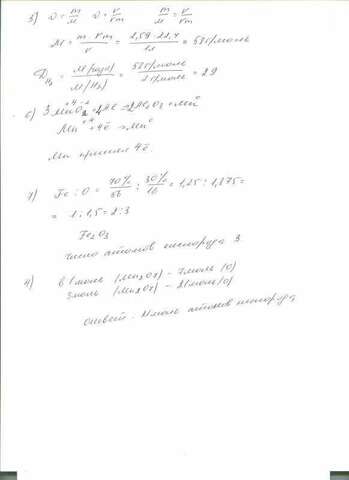 5) ν = m/M ν = V/Vm m/M = V/Vm
M = m · Vm / V = 2,59 · 22,4 / 1л = 58 г/моль
D H₂ = M(газа) / M(H₂) = 58 г/моль / 2 г/моль = 29
6) 3MnO₂ + 4Al = 2Al₂O₃ + 3Mn⁰
Mn⁺⁴ + 4ē → Mn⁰
Mn принял 4ē.
7) Fe : O = 70% / 56 : 30% / 16 = 1,25 : 1,875 =
= 1 : 1,5 = 2 : 3
Fe₂O₃
число атомов кислорода 3.
4) в 1 моле (Mn₂O₇) - 7 моль (O)
3 моль (Mn₂O₇) - 21 моль (O)
Ответ - 21 моль атомов кислорода